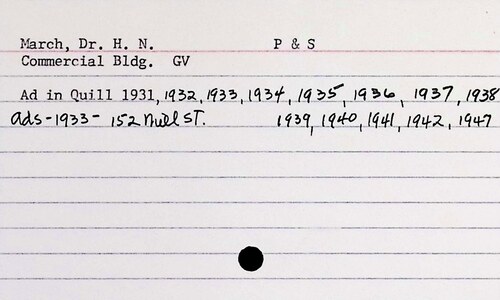 March, Dr. H. N. P & S
Commercial Bldg. GV
Ad in Quill 1931, 1932, 1933, 1934, 1935, 1936, 1937, 1938
Ads-1933- 152 Mill ST. 1939, 1940, 1941, 1942, 1947